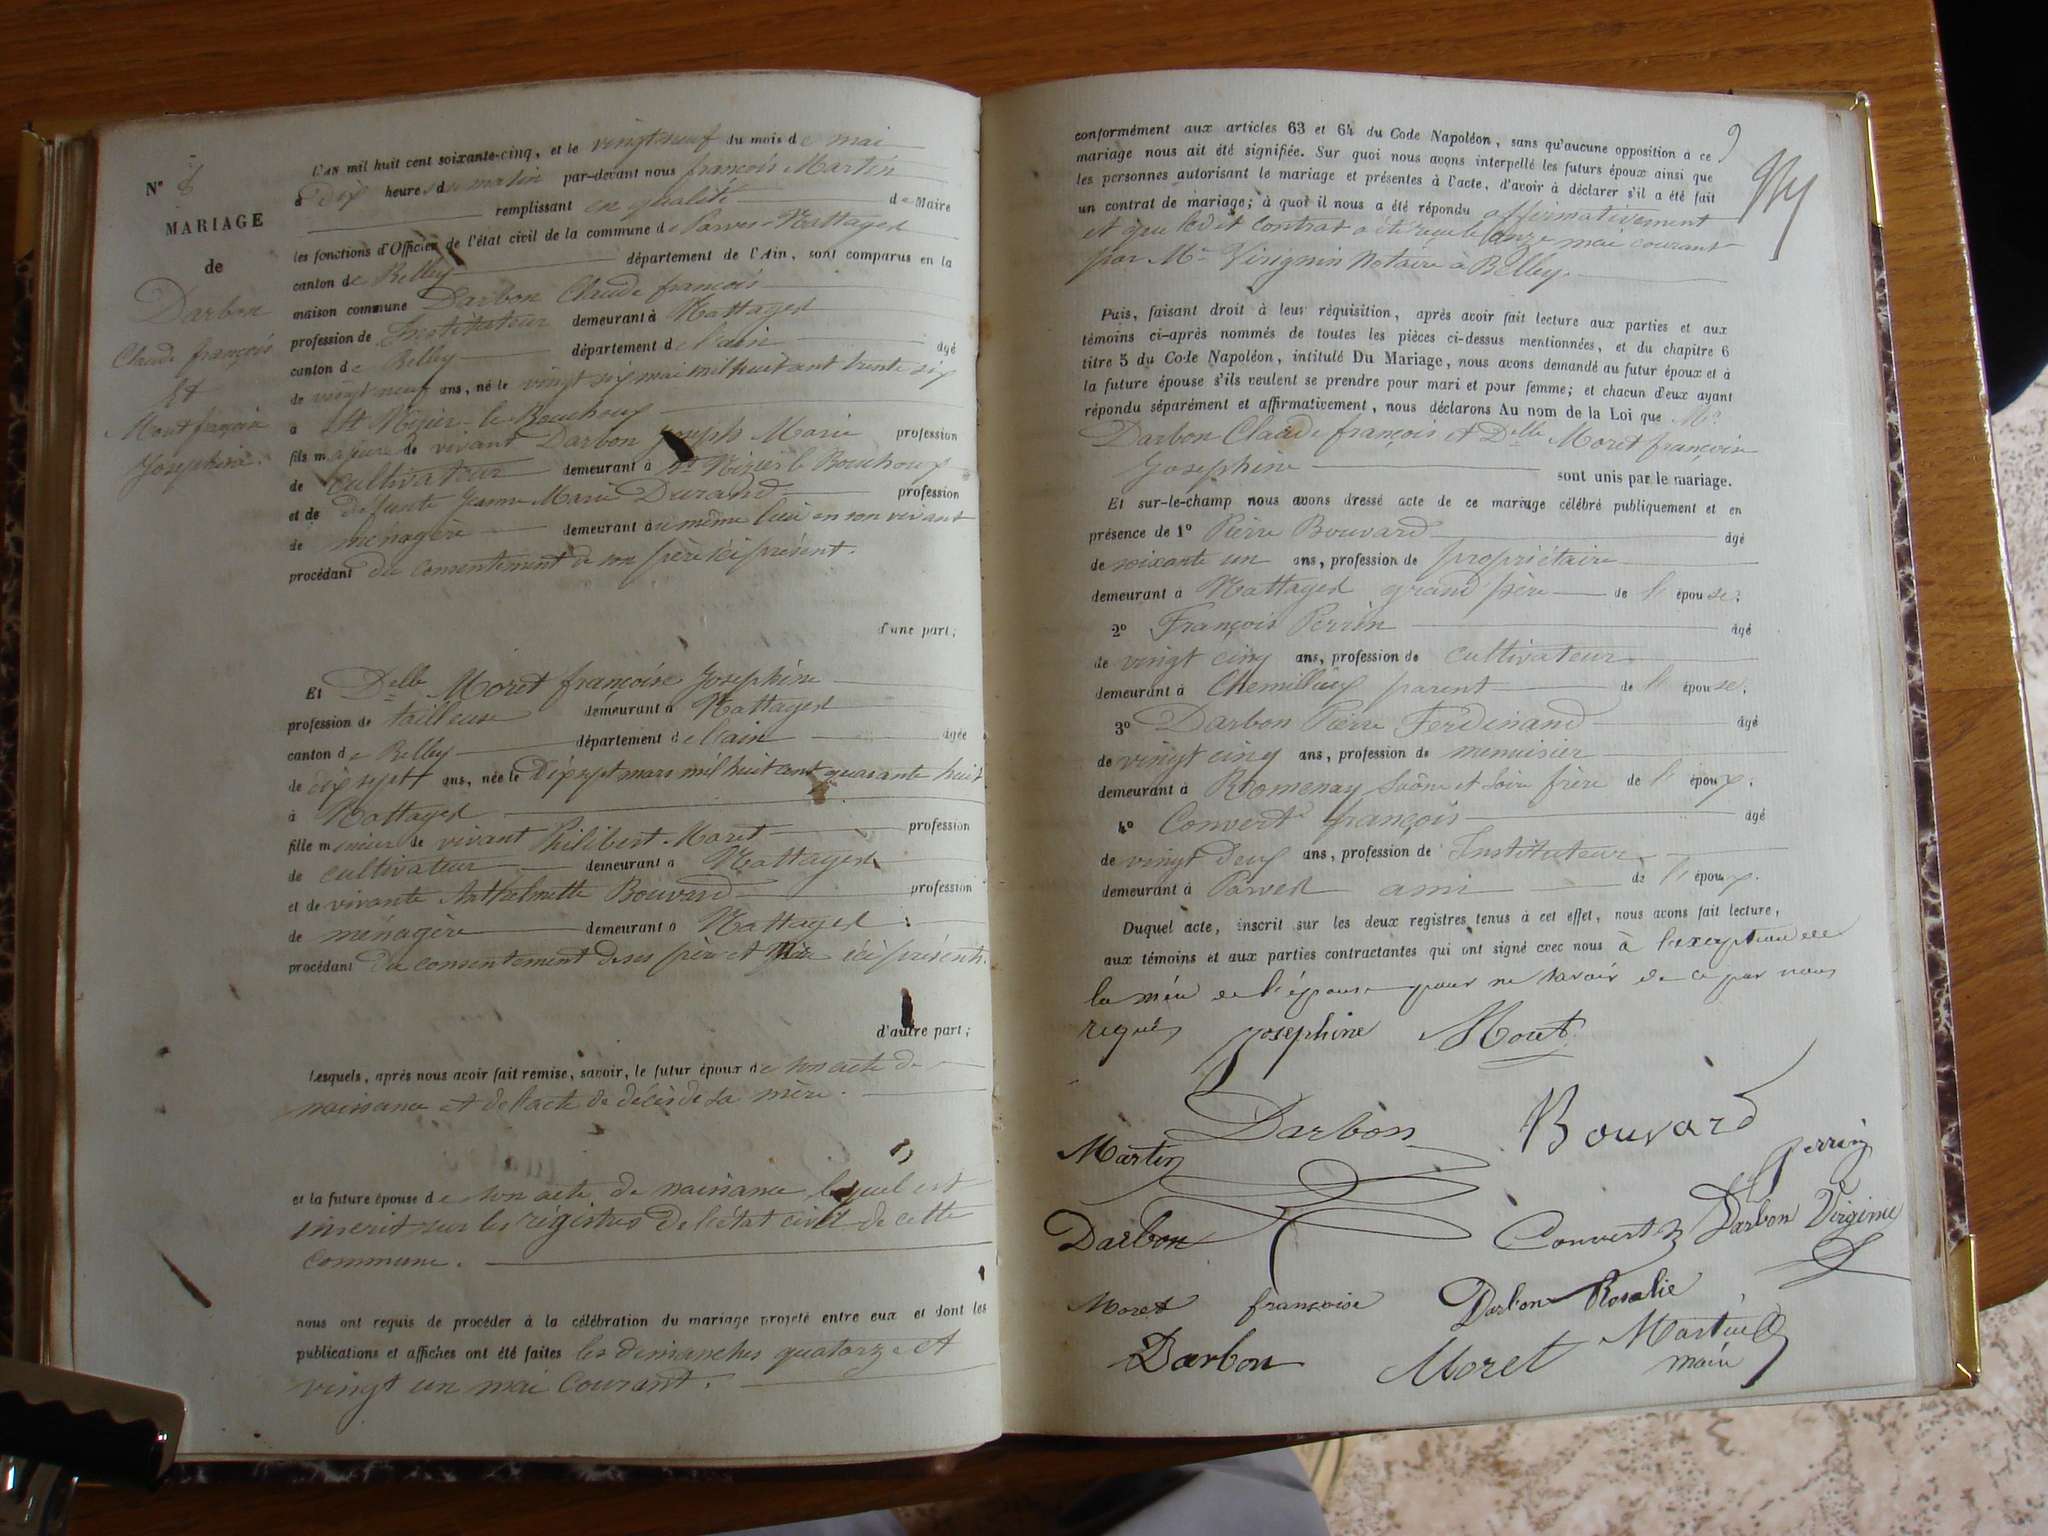 N° 8
MARIAGE
de
Darbon
Claude françois
Et
Moret françoise
Josephine.
L'AN mil huit cent soixante-cinq, et le vingt neuf du mois de mai
à Dix heures du matin par-devant nous françois Martin
remplissant en qualité de Maire
les fonctions d'Officier de l'état civil de la commune de Parves-Nattages
canton de Belley département de l'Ain, sont comparus en la
maison commune Darbon Claude françois
profession de Instituteur demeurant à Nattages
canton de Belley département de l'ain âgé
de vingt neuf ans, né le vingt six mai mil huit cent trente six
à St Nizier-le-Bouchoux
fils majeur de vivant Darbon Joseph Marie profession
de cultivateur demeurant à St Nizier le Bouchoux
et de défunte Jeanne Marie Durand profession
de ménagère demeurant au même lieu en son vivant
procédant du consentement de son père ici présent.
d'une part;
Et Delle Moret françoise Josephine
profession de tailleuse demeurant à Nattages
canton de Belley département de l'ain agée
de dix sept ans, née le Dix sept mars mil huit cent quarante huit
à Nattages
fille mineure de vivant Philibert Moret profession
de cultivateur demeurant à Nattages
et de vivante Anthelmette Bouvard profession
de ménagère demeurant à Nattages
procédant du consentement de ses père et Mère ici présents.
d'autre part;
Lesquels, après nous avoir fait remise, savoir, le futur époux de son acte de
naissance et de l'acte de décès de sa mère.
et la future épouse de son acte de naissance lequel est
inscrit sur les régistres de l'état civil de cette
commune.
nous ont requis de procéder à la célébration du mariage projeté entre eux et dont les
publications et affiches ont été faites les dimanches quatorze et
vingt un mai courant.
9
conformément aux articles 63 et 64 du Code Napoléon, sans qu'aucune opposition à ce
mariage nous ait été signifiée. Sur quoi nous avons interpellé les futurs époux ainsi que
les personnes autorisant le mariage et présentes à l'acte, d'avoir à déclarer s'il a été fait
un contrat de mariage; à quoi il nous a été répondu affirmativement
et que ledit contrat a été reçu le onze mai courant
par Me Virignin Notaire à Belley.
Puis, faisant droit à leur réquisition, après avoir fait lecture aux parties et aux
témoins ci-après nommés de toutes les pièces ci-dessus mentionnées, et du chapitre 6
titre 5 du Code Napoléon, intitulé Du Mariage, nous avons demandé au futur époux et à
la future épouse s'ils veulent se prendre pour mari et pour femme; et chacun d'eux ayant
répondu séparément et affirmativement, nous déclarons Au nom de la Loi que Mr
Darbon Claude françois et Delle Moret françoise
Josephine sont unis par le mariage.
Et sur-le-champ nous avons dressé acte de ce mariage célébré publiquement et en
présence de 1° Pierre Bouvard âgé
de soixante un ans, profession de propriétaire
demeurant à Nattages grand père de l'épouse.
2° François Perrin âgé
de vingt cinq ans, profession de cultivateur
demeurant à Chemillieu parent de l'épouse.
3° Darbon Pierre Ferdinand âgé
de vingt cinq ans, profession de menuisier
demeurant à Romenay Saône et Loire frère de l'époux.
4° Convert françois âgé
de vingt deux ans, profession de Instituteur
demeurant à Parves ami de l'époux.
Duquel acte, inscrit sur les deux registres tenus à cet effet, nous avons fait lecture,
aux témoins et aux parties contractantes qui ont signé avec nous à l'exception de
la mère de l'épouse pour ne savoir de ce par nous
requis
Josephine Moret
Darbon
Bouvard
Martin
Perrin
Darbon
Convert
Darbon Virginie
Moret françoise
Darbon Rosalie
Darbon
Moret
Martin
maire